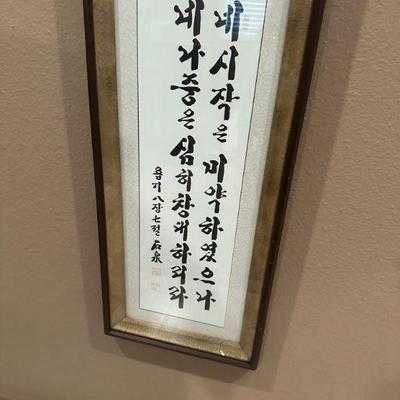 네 시작은 미약하였으나
네 나중은 심히 창대하리라
욥기 八장 七절 石泉